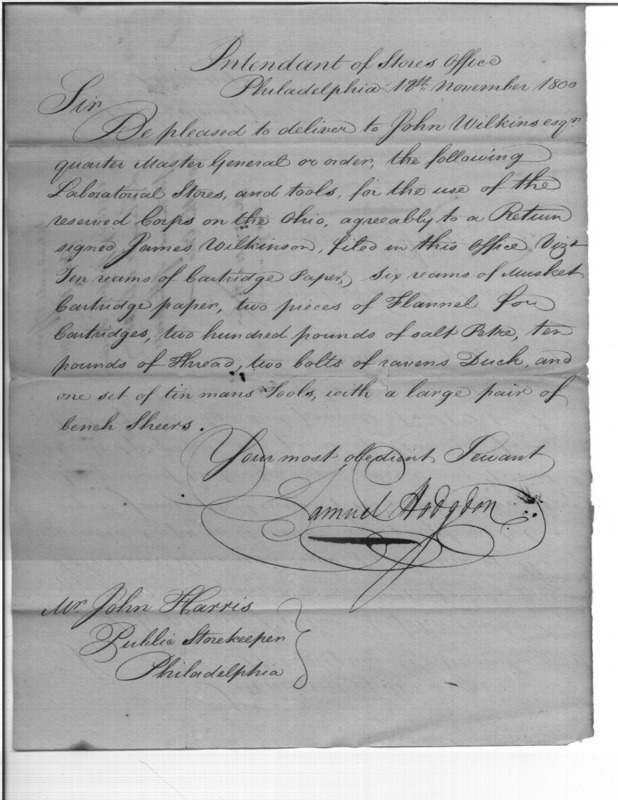 Intendant of Stores Office
Philadelphia 18th November 1800
Sir
Be pleased to deliver to John Wilkins esqr
quarter Master General or order, the following
Laboratorial Stores, and tools, for the use of the
reserved Corps on the Ohio, agreeably to a Return
signed James Wilkinson, filed in this Office Vizt
Ten reams of Cartridge Paper, Six reams of Musket
Cartridge paper, two pieces of Flannel for
Cartridges, two hundred pounds of salt Petre, ten
pounds of Thread, two bolts of ravens Duck, and
one set of tin mans Tools, with a large pair of
bench Sheers.
Your most obedient Servant
Samuel Hodgdon
Mr. John Harris
Public Storekeeper
Philadelphia